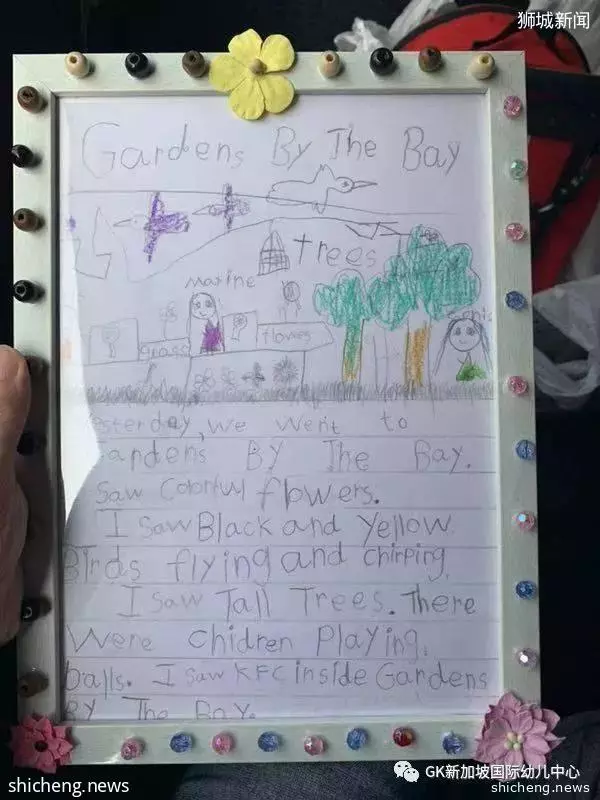 狮城新闻
Gardens By The Bay
trees
Marine
grass
flowes
esterday, we went to
ardens By The Bay.
saw colorful flowers.
I saw Black and Yellow
Birds flying and chirping.
I saw Tall Trees. There
were chidren Playing.
balls. I saw KFC inside Gardens
By The Bay.
GK新加坡国际幼儿中心
shicheng.news
shicheng.news